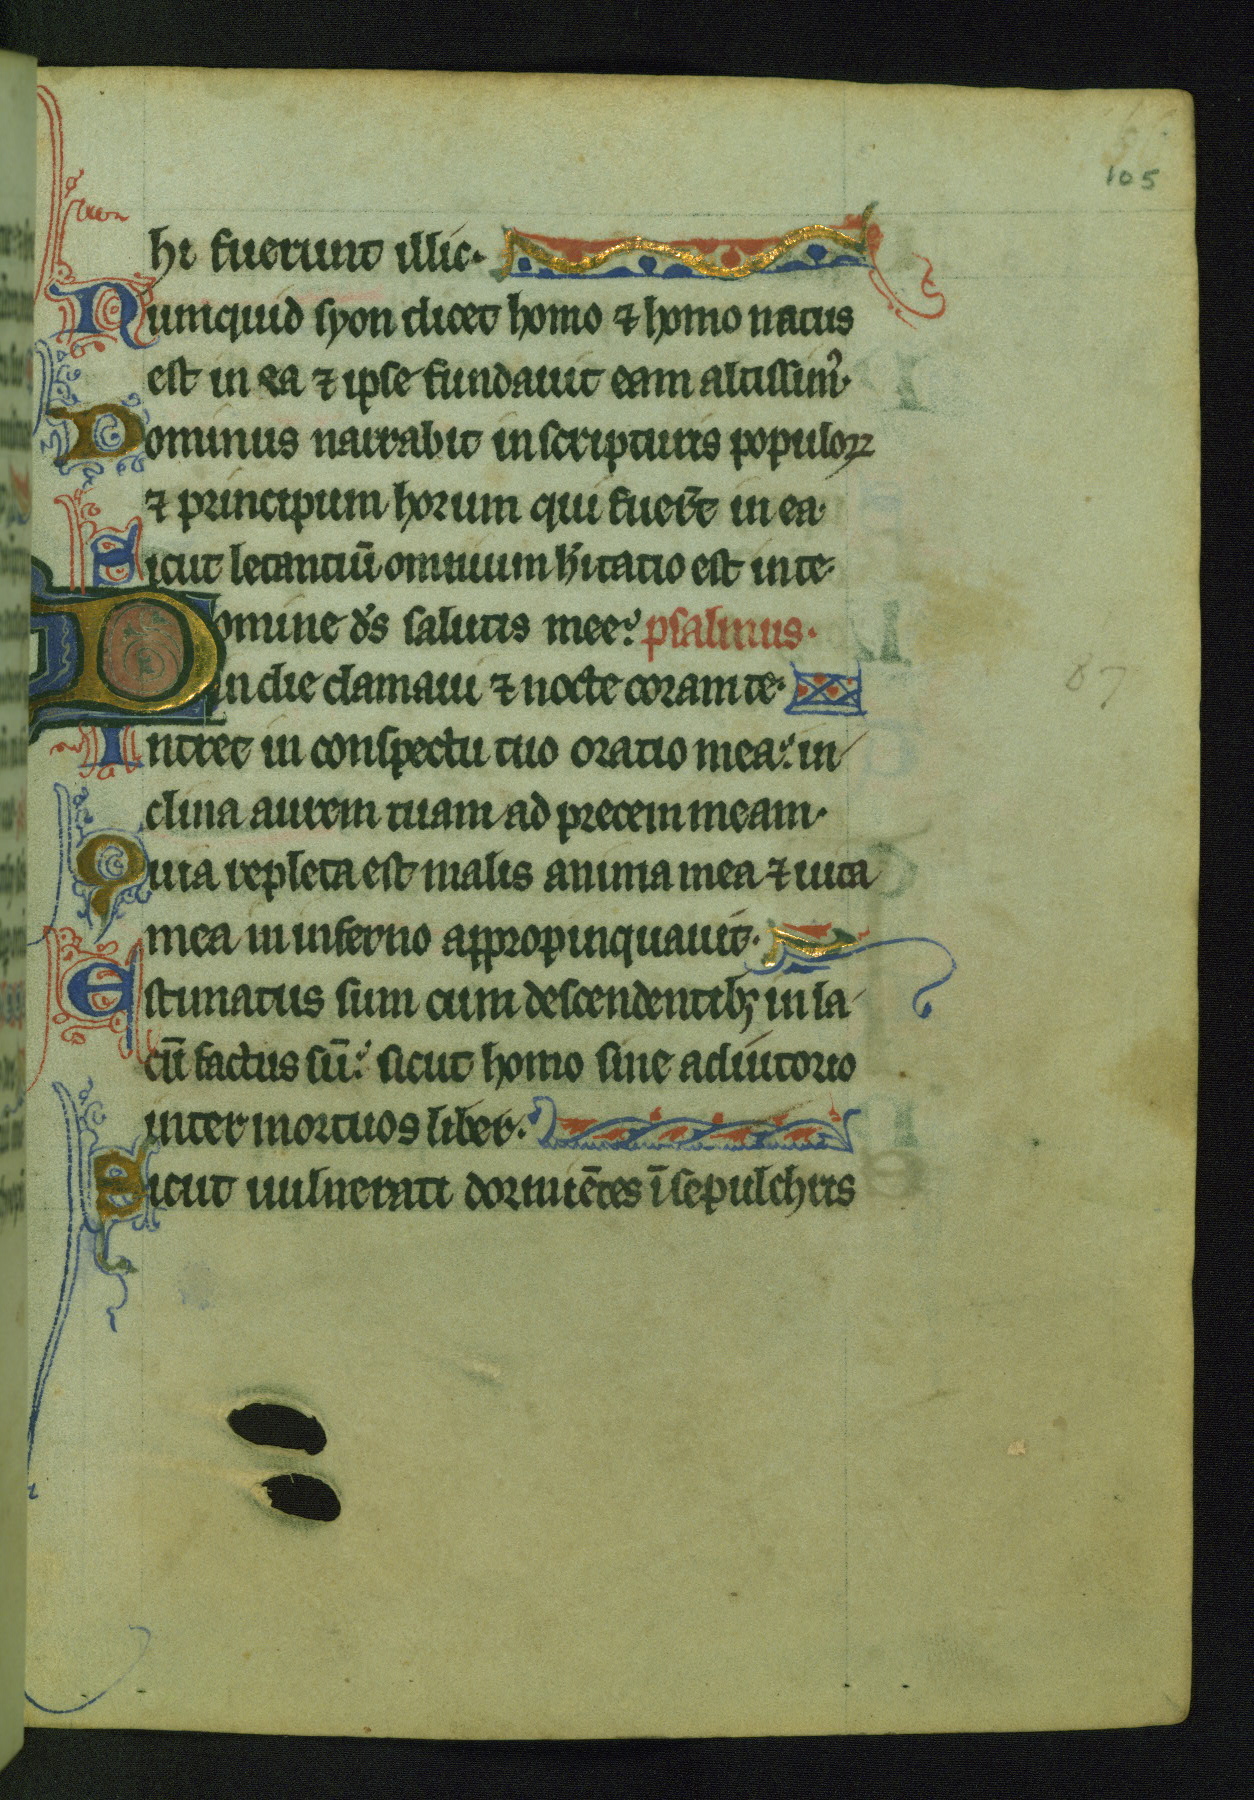 105
hi fuerunt illic·
Numquid syon dicet homo ⁊ homo natus
est in ea ⁊ ipse fundauit eam altissimꝰ·
Dominus narrabit in scripturis populoꝝ
⁊ principum horum qui fuer̄t in ea·
Sicut letantiū omnium h̄itatio est in te·
Domine ds̄ salutis mee: psalmus·
in die clamaui ⁊ nocte coram te·
Intret in conspectu tuo oratio mea: in
clina aurem tuam ad precem meam·
Quia repleta est malis anima mea ⁊ uita
mea in inferno appropinquauit·
Estimatus sum cum descendentibꝫ in la
cū factus sū: sicut homo sine adiutorio
inter mortuos liber·
Sicut uulnerati dormiētes ī sepulchris
87